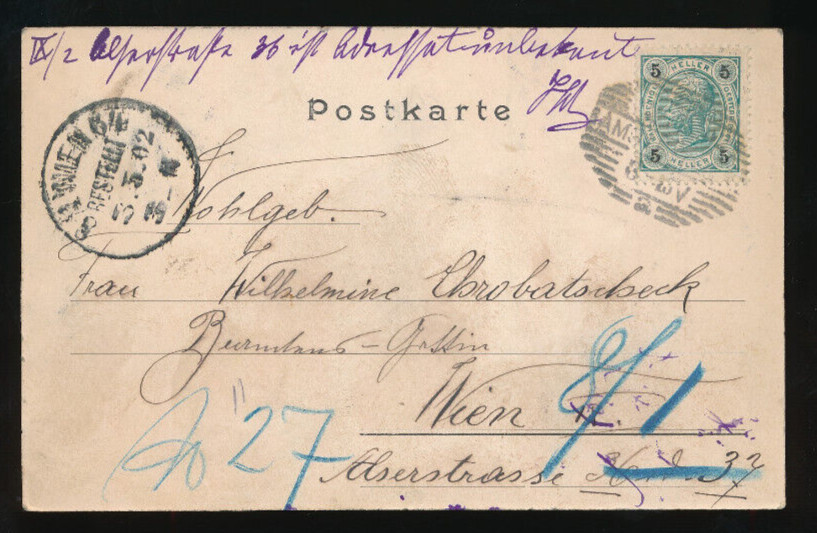 IX/2 Alserstraße 36 ist Adressat unbekannt
Postkarte
5 HELLER 5
5 HELLER 5
WIEN
BESTELLT
5.3.02
Wohlgeb.
Frau Wilhelmine Chrobatscheck
Beamtens-Gattin
Wien
8/1
27
Alserstrasse 37